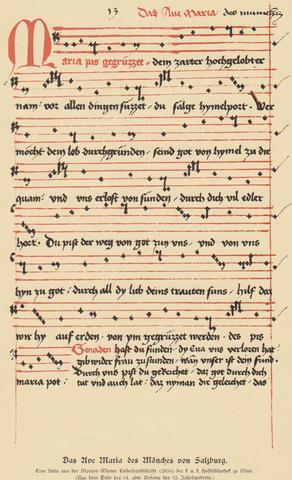 13 Das Ave Maria des munichs
Maria pis gegrüzzet · dem zarter hochgelobter
nam · vor allen dingen süzzet · du sälge hymelport · Wer
möcht dein lob durchgründen · seind got von hymel zu dir
quam · und uns erlost von sunden · durch dich vil edler
hort · Du pist der weg von got zuns uns · und von uns
hyn zu got : durch all dy lieb deins trauten suns · hilf daz
wir hy auf erden · von ym gegrüzzet werden · des pis
Genaden hast du funden · dy Eva uns verloren hat ·
gib wider frau zustunden · wan unser ist dein sund ·
Durch uns pist du geczichet · daz got durch dich
maria pot : tut und auch lat · daz nyman dir geleichet · das
Das Ave Maria des Mönches von Salzburg.
Eine Seite aus der Mondsee-Wiener Liederhandschrift (2856) der k. u. k. Hofbibliothek zu Wien.
(Aus dem Ende des 14. oder Anfang des 15. Jahrhunderts.)